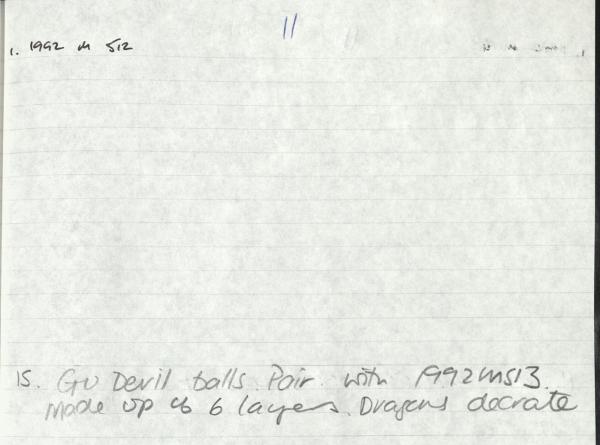 11
1. 1992 M 512
15. Gu Devil balls. Pair with 1992M513.
Made up of 6 layers. Dragons decrate